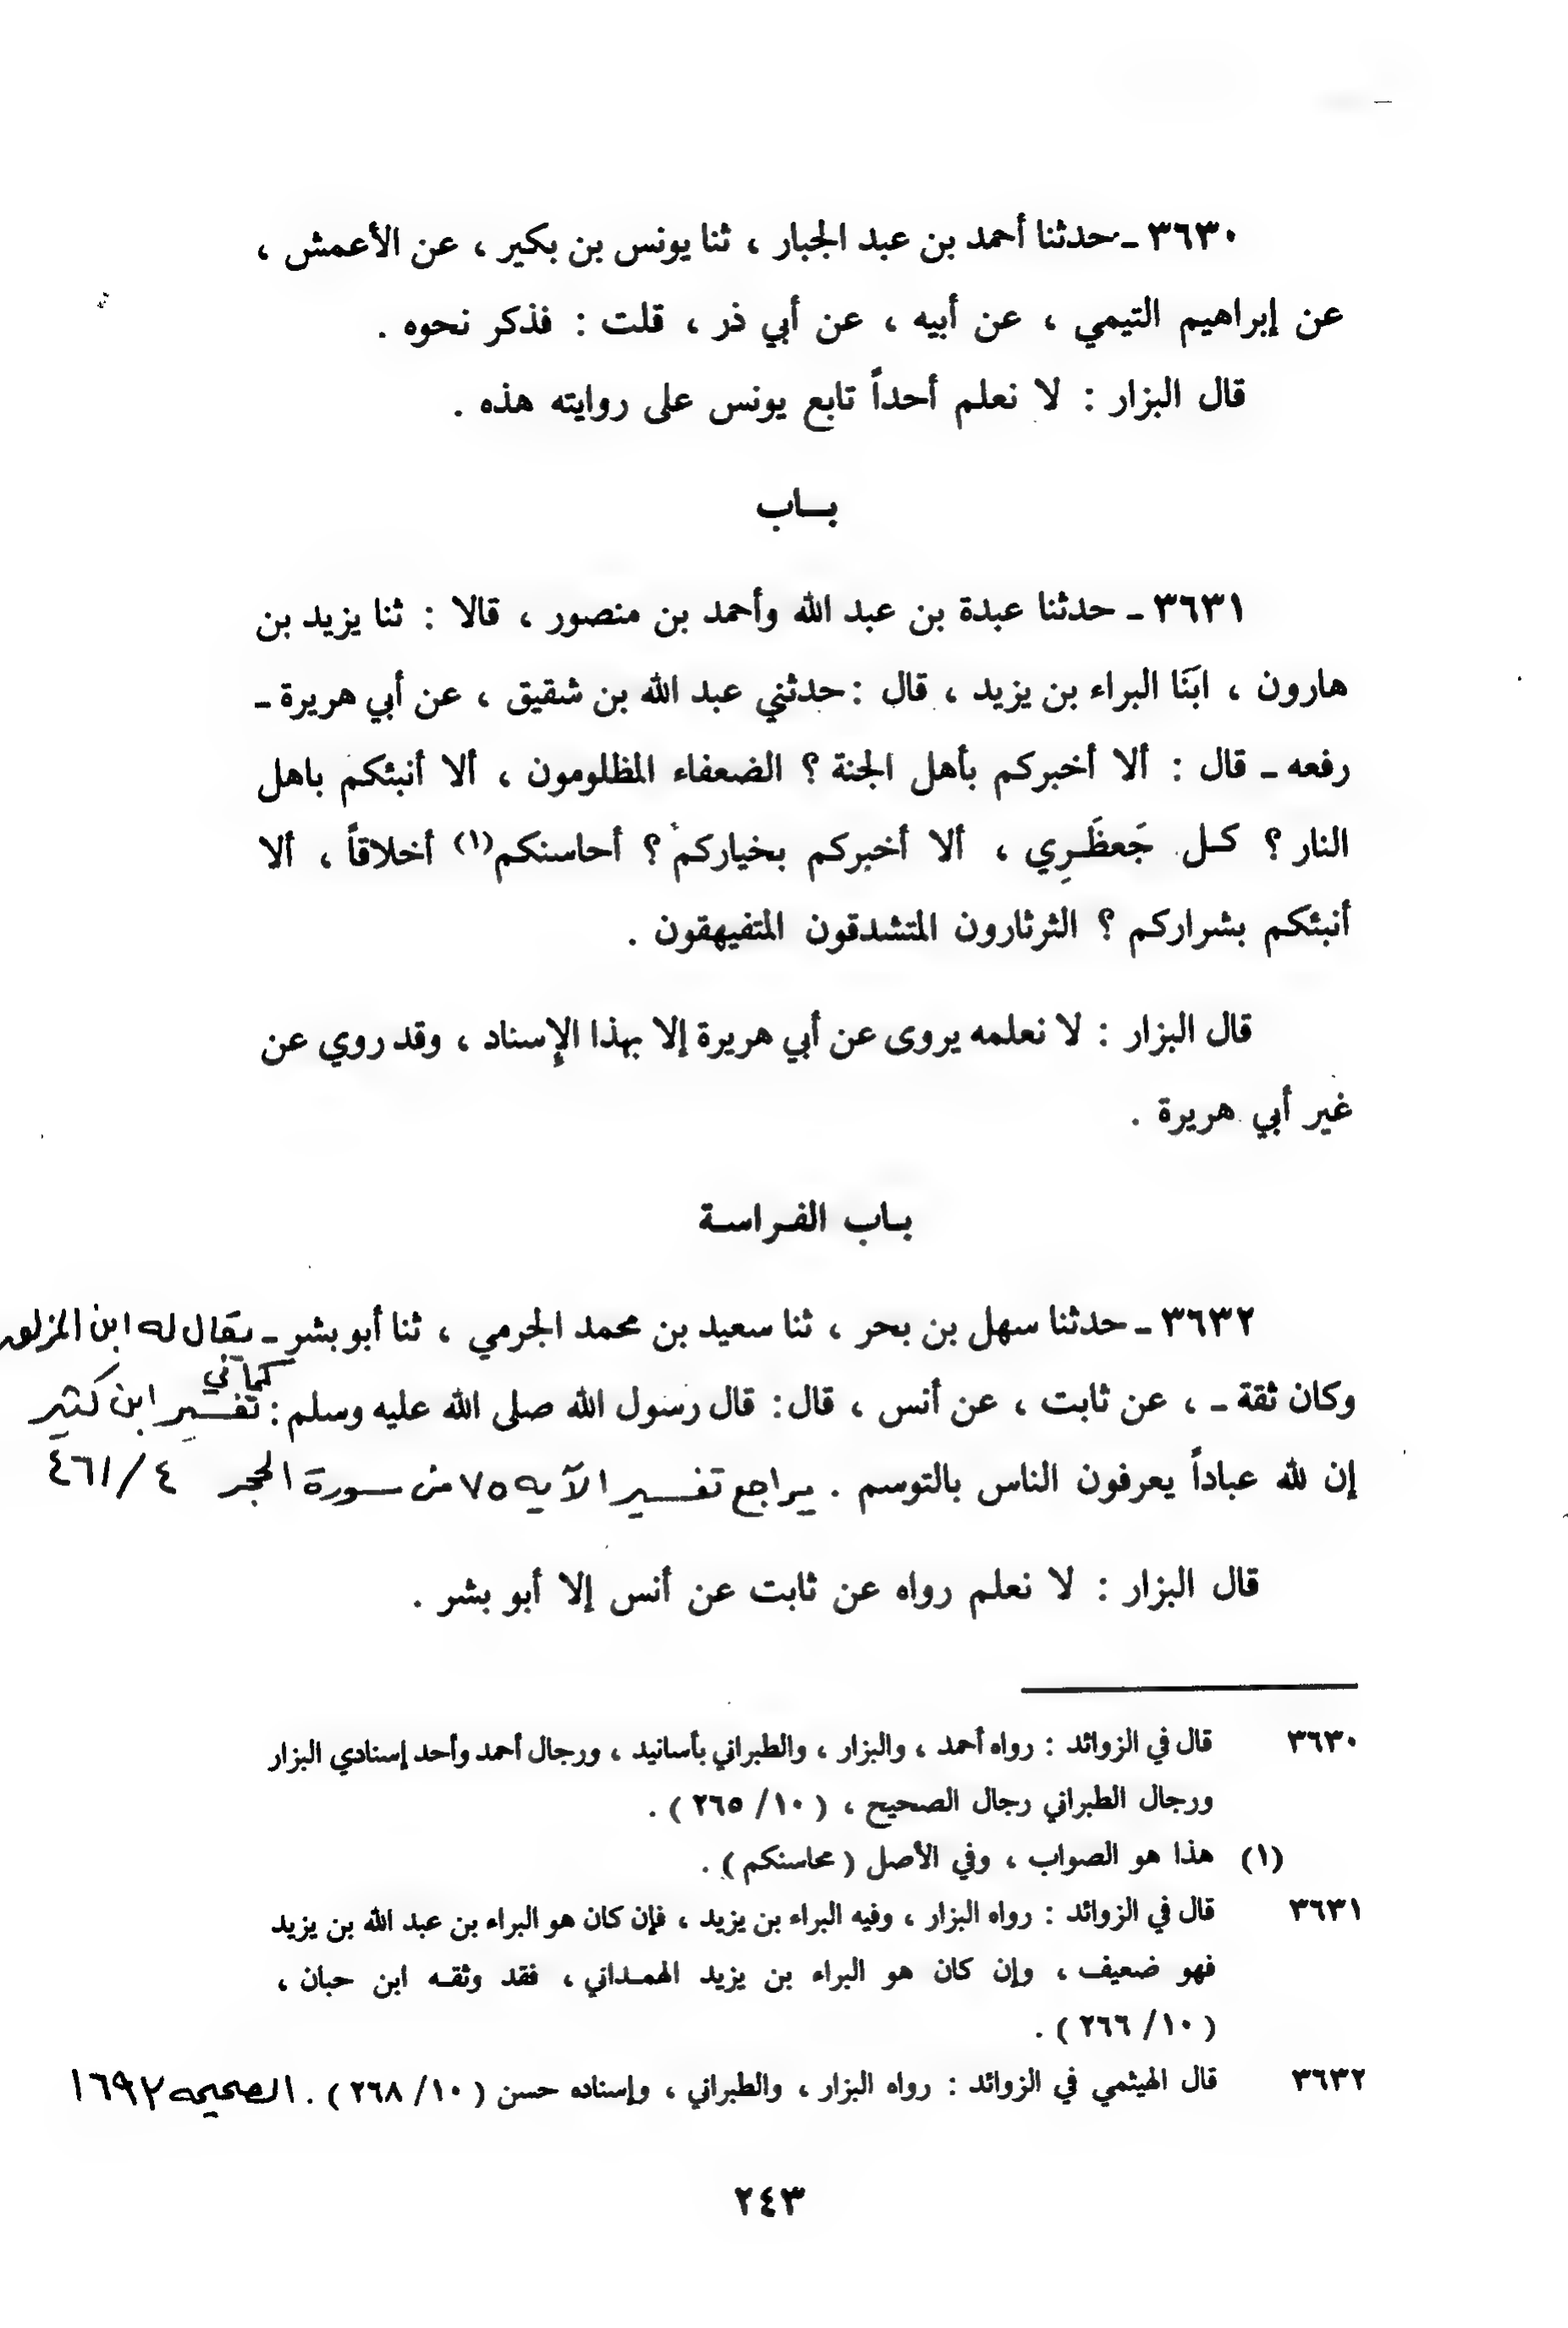 ٣٦٣٠ ـ حدثنا أحمد بن عبد الجبار ، ثنا يونس بن بكير ، عن الأعمش ،
عن إبراهيم التيمي ، عن أبيه ، عن أبي ذر ، قلت : فذكر نحوه .
قال البزار : لا نعلم أحداً تابع يونس على روايته هذه .
بـاب
٣٦٣١ ـ حدثنا عبدة بن عبد الله وأحمد بن منصور ، قالا : ثنا يزيد بن
هارون ، ابَنَا البراء بن يزيد ، قال : حدثني عبد الله بن شقيق ، عن أبي هريرة ـ
رفعه ـ قال : ألا أخبركم بأهل الجنة ؟ الضعفاء المظلومون ، ألا أنبئكم باهل
النار ؟ كـل جَعظَـرِي ، ألا أخبركم بخياركم ؟ أحاسنكم(١) أخلاقاً ، ألا
أنبئكم بشراركم ؟ الثرثارون المتشدقون المتفيهقون .
قال البزار : لا نعلمه يروى عن أبي هريرة إلا بهذا الإسناد ، وقد روي عن
غير أبي هريرة .
بـاب الفـراسـة
٣٦٣٢ ـ حدثنا سهل بن بحر ، ثنا سعيد بن محمد الجرمي ، ثنا أبو بشر ـ يقال له ابن المزلق
كما في
وكان ثقة ـ ، عن ثابت ، عن أنس ، قال : قال رسول الله صلى الله عليه وسلم : تفسير ابن كثير
إن لله عباداً يعرفون الناس بالتوسم . يراجع تفسير الآيه ٧٥ من سورة الحجر ٤/ ٤٦١
قال البزار : لا نعلم رواه عن ثابت عن أنس إلا أبو بشر .
٣٦٣٠ قال في الزوائد : رواه أحمد ، والبزار ، والطبراني بأسانيد ، ورجال أحمد وأحد إسنادي البزار
ورجال الطبراني رجال الصحيح ، ( ١٠/ ٢٦٥ ) .
(١) هذا هو الصواب ، وفي الأصل ( محاسنكم ) .
٣٦٣١ قال في الزوائد : رواه البزار ، وفيه البراء بن يزيد ، فإن كان هو البراء بن عبد الله بن يزيد
فهو ضعيف ، وإن كان هو البراء بن يزيد الهمـداني ، فقد وثقـه ابن حبان ،
( ١٠/ ٢٦٦ ) .
٣٦٣٢ قال الهيثمي في الزوائد : رواه البزار ، والطبراني ، وإسناده حسن ( ١٠/ ٢٦٨ ) . الصحيحه ١٦٩٢
٢٤٣